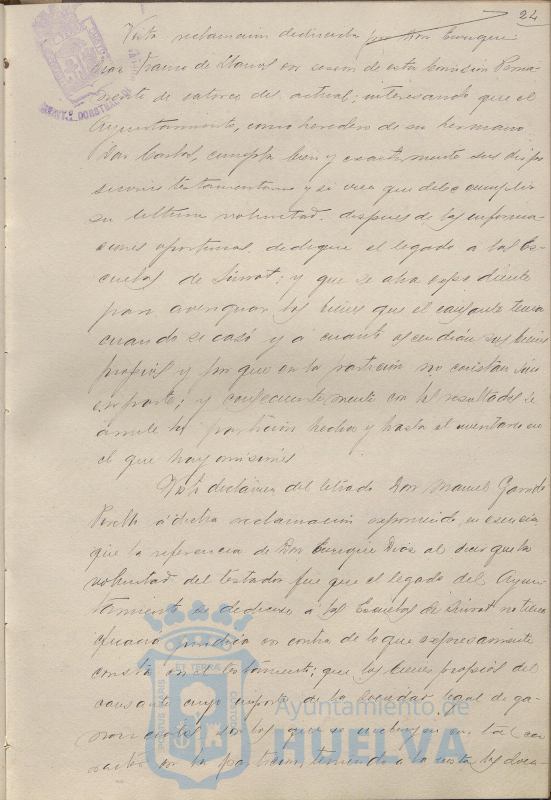 24
Vista reclamacion deducida por Don Enrique
Diaz Franco de Llanos en sesion de esta Comision Perma-
nente de catorce del actual; interesando que el
Ayuntamiento, como heredero de su hermano
Don Carlos, cumpla bien y exactamente sus dispo
siciones testamentarias y si cree que debe cumplir
su ultima voluntad, despues de las informa-
ciones oportunas, dedique el legado a las Es-
cuelas de Siurot; y que se abra expediente
para averiguar los bienes que el causante tenia
cuando se casó y á cuanto ascendian sus bienes
propios y por que en la particion no constan sin
importe; y consecuentemente con los resultados se
anule la particion hecha y hasta el inventario en
el que hay omisiones
Visto dictámen del letrado Don Manuel Garrido
Perelló á dicha reclamacion exponiendo en esencia
que la referencia de Don Enrique Diaz al decir que la
voluntad del testador fue que el legado del Ayun-
tamiento se dedicase á las Escuelas de Siurot no tiene
eficacia juridica en contra de lo que expresamente
consta en el testamento; que los bienes propios del
causante cuyo importe de la sociedad legal de ga-
nanciales son los que se incluyen en tal con
cepto en la particion, teniendo a la vista los docu-
Ayuntamiento de
HUELVA
PORTUS MARIS
ET TERRÆ
CUSTODIA